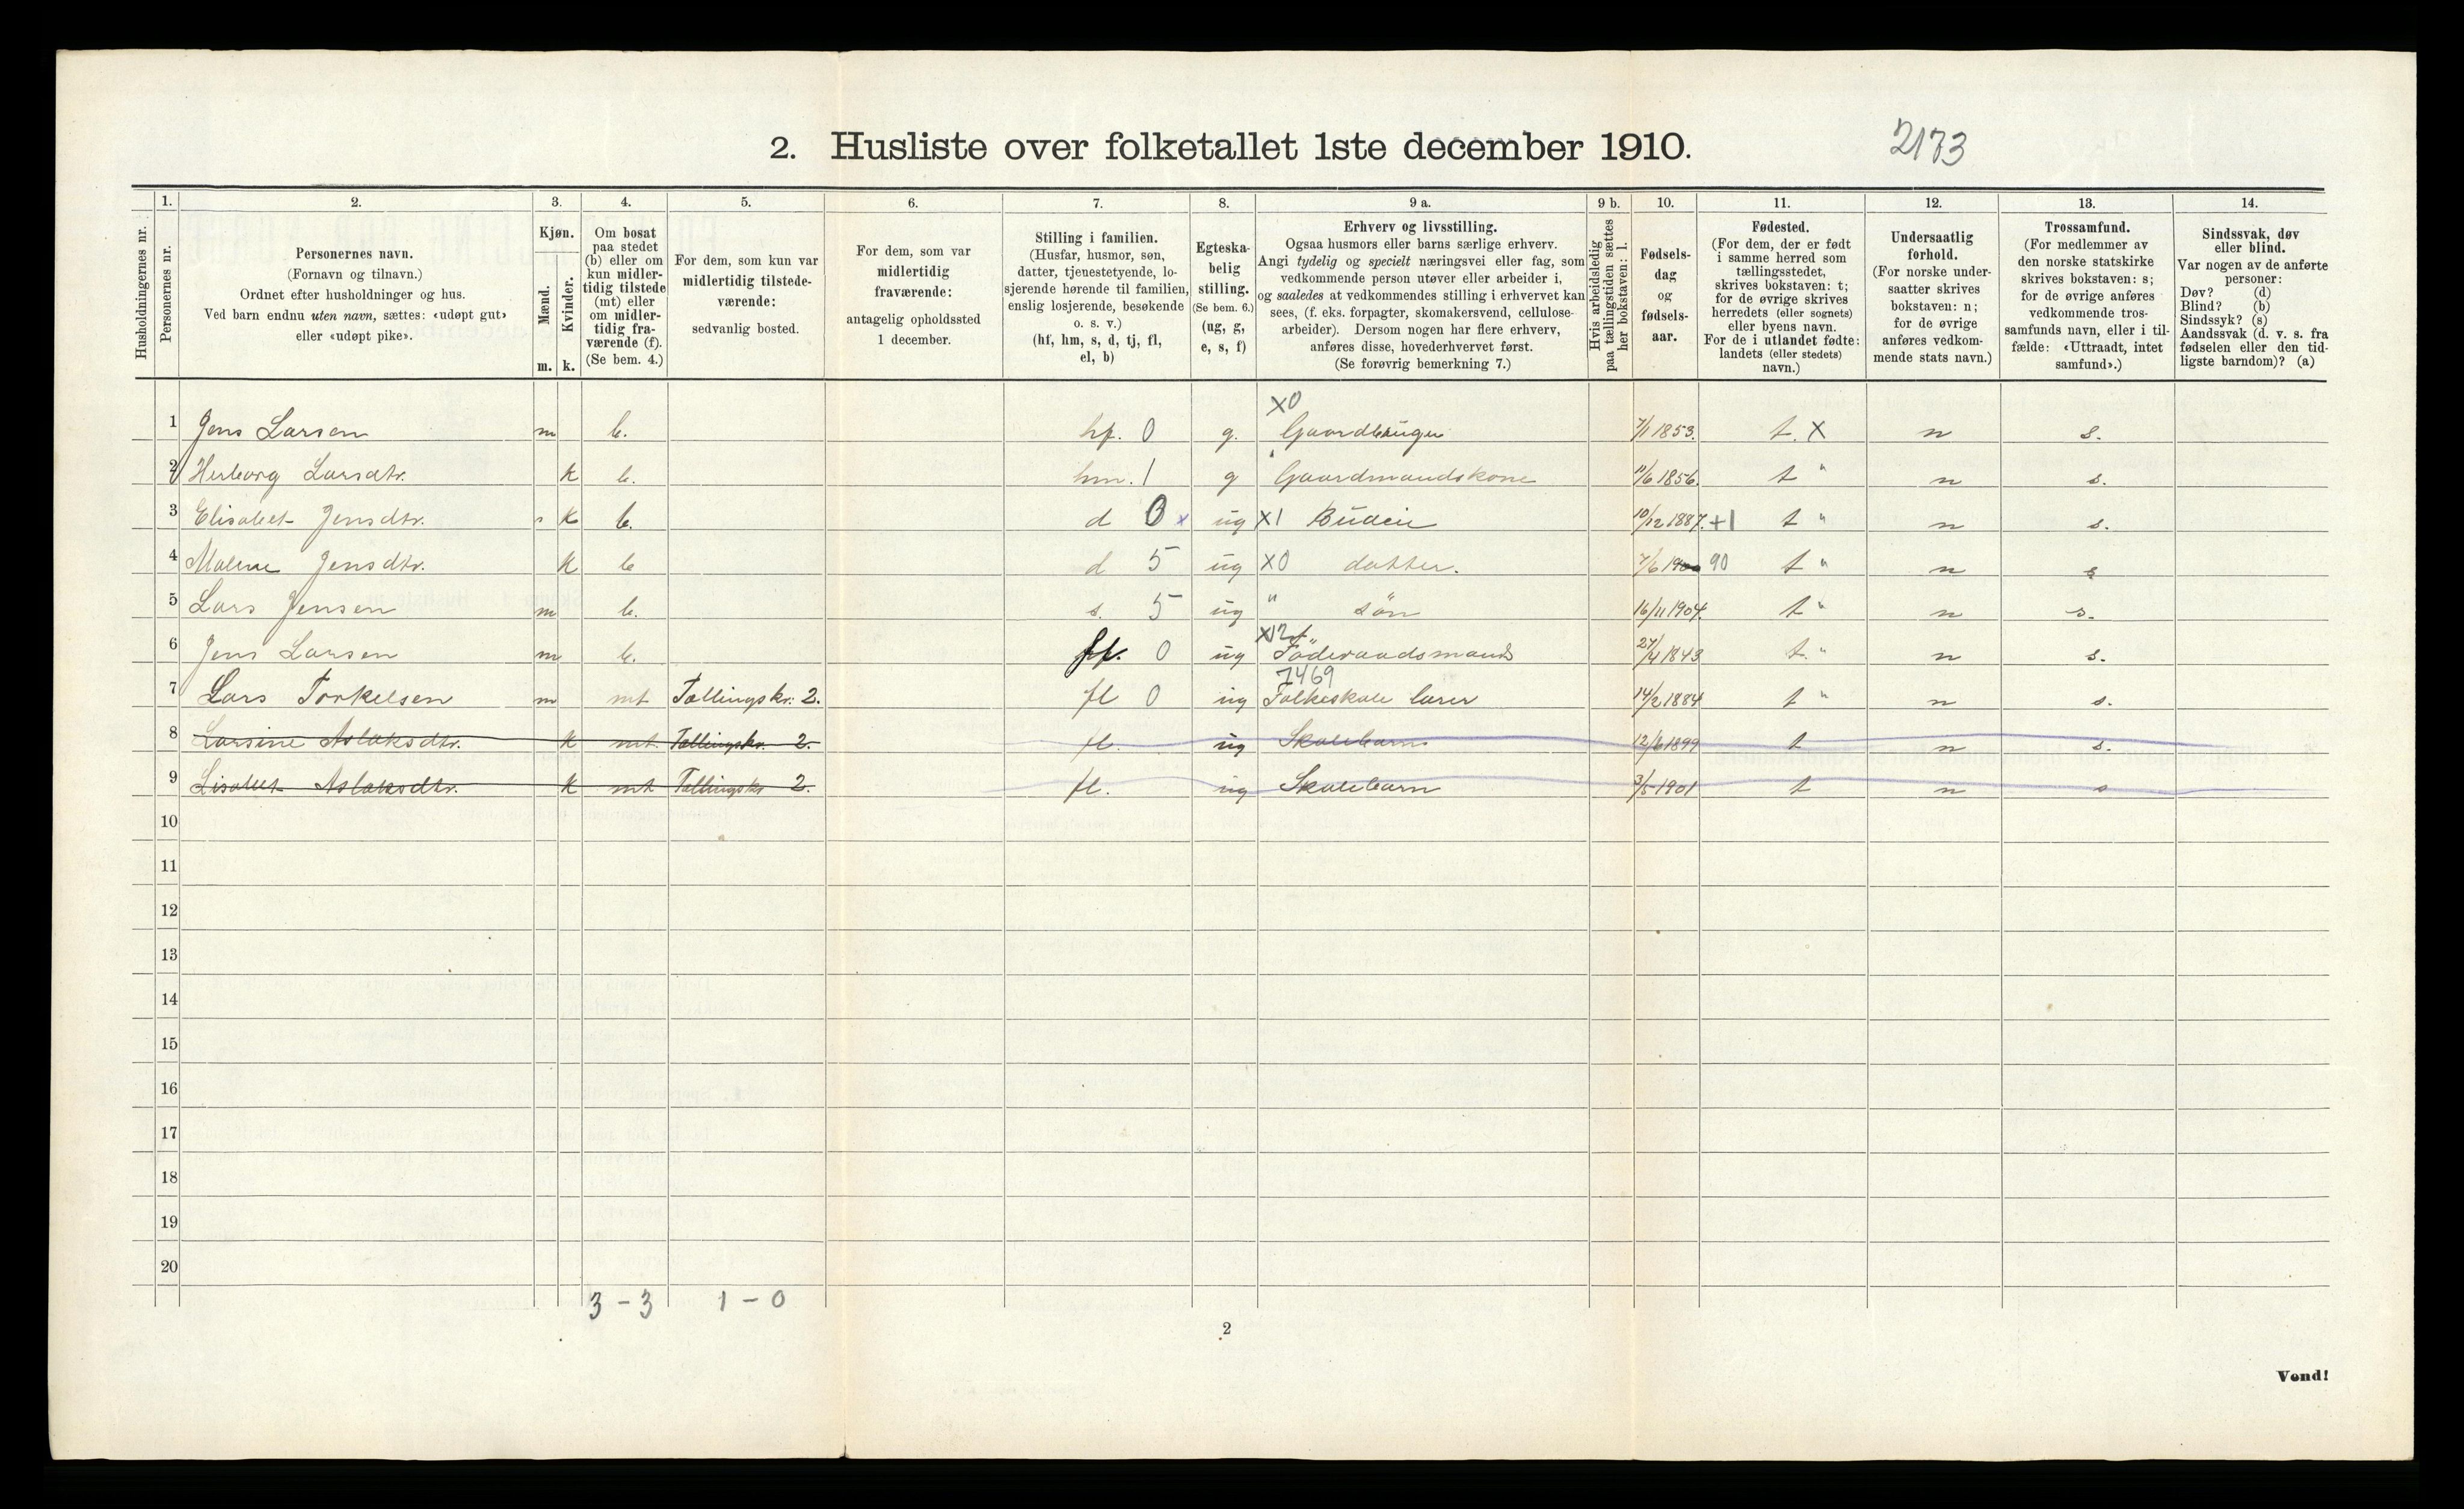 2. Husliste over folketallet 1ste december 1910.
2173
Husholdningernes nr.
1.
Personernes nr.
2.
Personernes navn.
(Fornavn og tilnavn.)
Ordnet efter husholdninger og hus.
Ved barn endnu uten navn, sættes: «udøpt gut»
eller «udøpt pike».
3.
Kjøn.
Mænd.
m.
Kvinder.
k.
4.
Om bosat
paa stedet
(b) eller om
kun midler-
tidig tilstede
(mt) eller
om midler-
tidig fra-
værende (f).
(Se bem. 4.)
5.
For dem, som kun var
midlertidig tilstede-
værende:
sedvanlig bosted.
6.
For dem, som var
midlertidig
fraværende:
antagelig opholdssted
1 december.
7.
Stilling i familien.
(Husfar, husmor, søn,
datter, tjenestetyende, lo-
sjerende hørende til familien,
enslig losjerende, besøkende
o. s. v.)
(hf, hm, s, d, tj, fl,
el, b)
8.
Egteska-
belig
stilling.
(Se bem. 6.)
(ug, g,
e, s, f)
9 a.
Erhverv og livsstilling.
Ogsaa husmors eller barns særlige erhverv.
Angi tydelig og specielt næringsvei eller fag, som
vedkommende person utøver eller arbeider i,
og saaledes at vedkommendes stilling i erhvervet kan
sees, (f. eks. forpagter, skomakersvend, cellulose-
arbeider). Dersom nogen har flere erhverv,
anføres disse, hovederhvervet først.
(Se forøvrig bemerkning 7.)
9 b.
Hvis arbeidsledig
paa tællingstiden sættes
her bokstaven: l.
10.
Fødsels-
dag
og
fødsels-
aar.
11.
Fødested.
(For dem, der er født
i samme herred som
tællingsstedet,
skrives bokstaven: t;
for de øvrige skrives
herredets (eller sognets)
eller byens navn.
For de i utlandet fødte:
landets (eller stedets)
navn.)
12.
Undersaatlig
forhold.
(For norske under-
saatter skrives
bokstaven: n;
for de øvrige
anføres vedkom-
mende stats navn.)
13.
Trossamfund.
(For medlemmer av
den norske statskirke
skrives bokstaven: s;
for de øvrige anføres
vedkommende tros-
samfunds navn, eller i til-
fælde: «Uttraadt, intet
samfund».)
14.
Sindssvak, døv
eller blind.
Var nogen av de anførte
personer:
Døv? (d)
Blind? (b)
Sindssyk? (s)
Aandssvak (d. v. s. fra
fødselen eller den tid-
ligste barndom)? (a)
X0
1 Jens Larsen m b. hf. 0 g. Gaardbruger 7/1 1853. t. X n s.
2 Herborg Larsdtr. k b. hm. 1 g Gaardmandskone 11/6 1856. t " n s.
3 Elisabet Jensdtr. k b. d 0 x ug X1 Budeie 10/12 1887. +1 t " n s.
4 Malene Jensdtr. k b d 5 ug X0 datter. 7/6 1900 90 t " n s
5 Lars Jensen m b. s. 5 ug " søn 16/11 1904. t " n s.
X12
6 Jens Larsen m b. ff. 0 ug Føderaadsmand 27/4 1843 t. " n s.
7469
7 Lars Torkelsen m mt Tællingskr: 2. fl 0 ug Folkeskole lærer 14/2 1884 t " n s.
8 Larsine Aslaksdtr. k mt. Tællingskr. 2. fl. ug Skolebarn 12/6 1899 t n s.
9 Lisabet Aslaksdtr. k mt Tællingskr 2. fl. ug Skolebarn 3/5 1901 t n s
10
11
12
13
14
15
16
17
18
19
20
3 - 3 1 - 0
2
Vend!